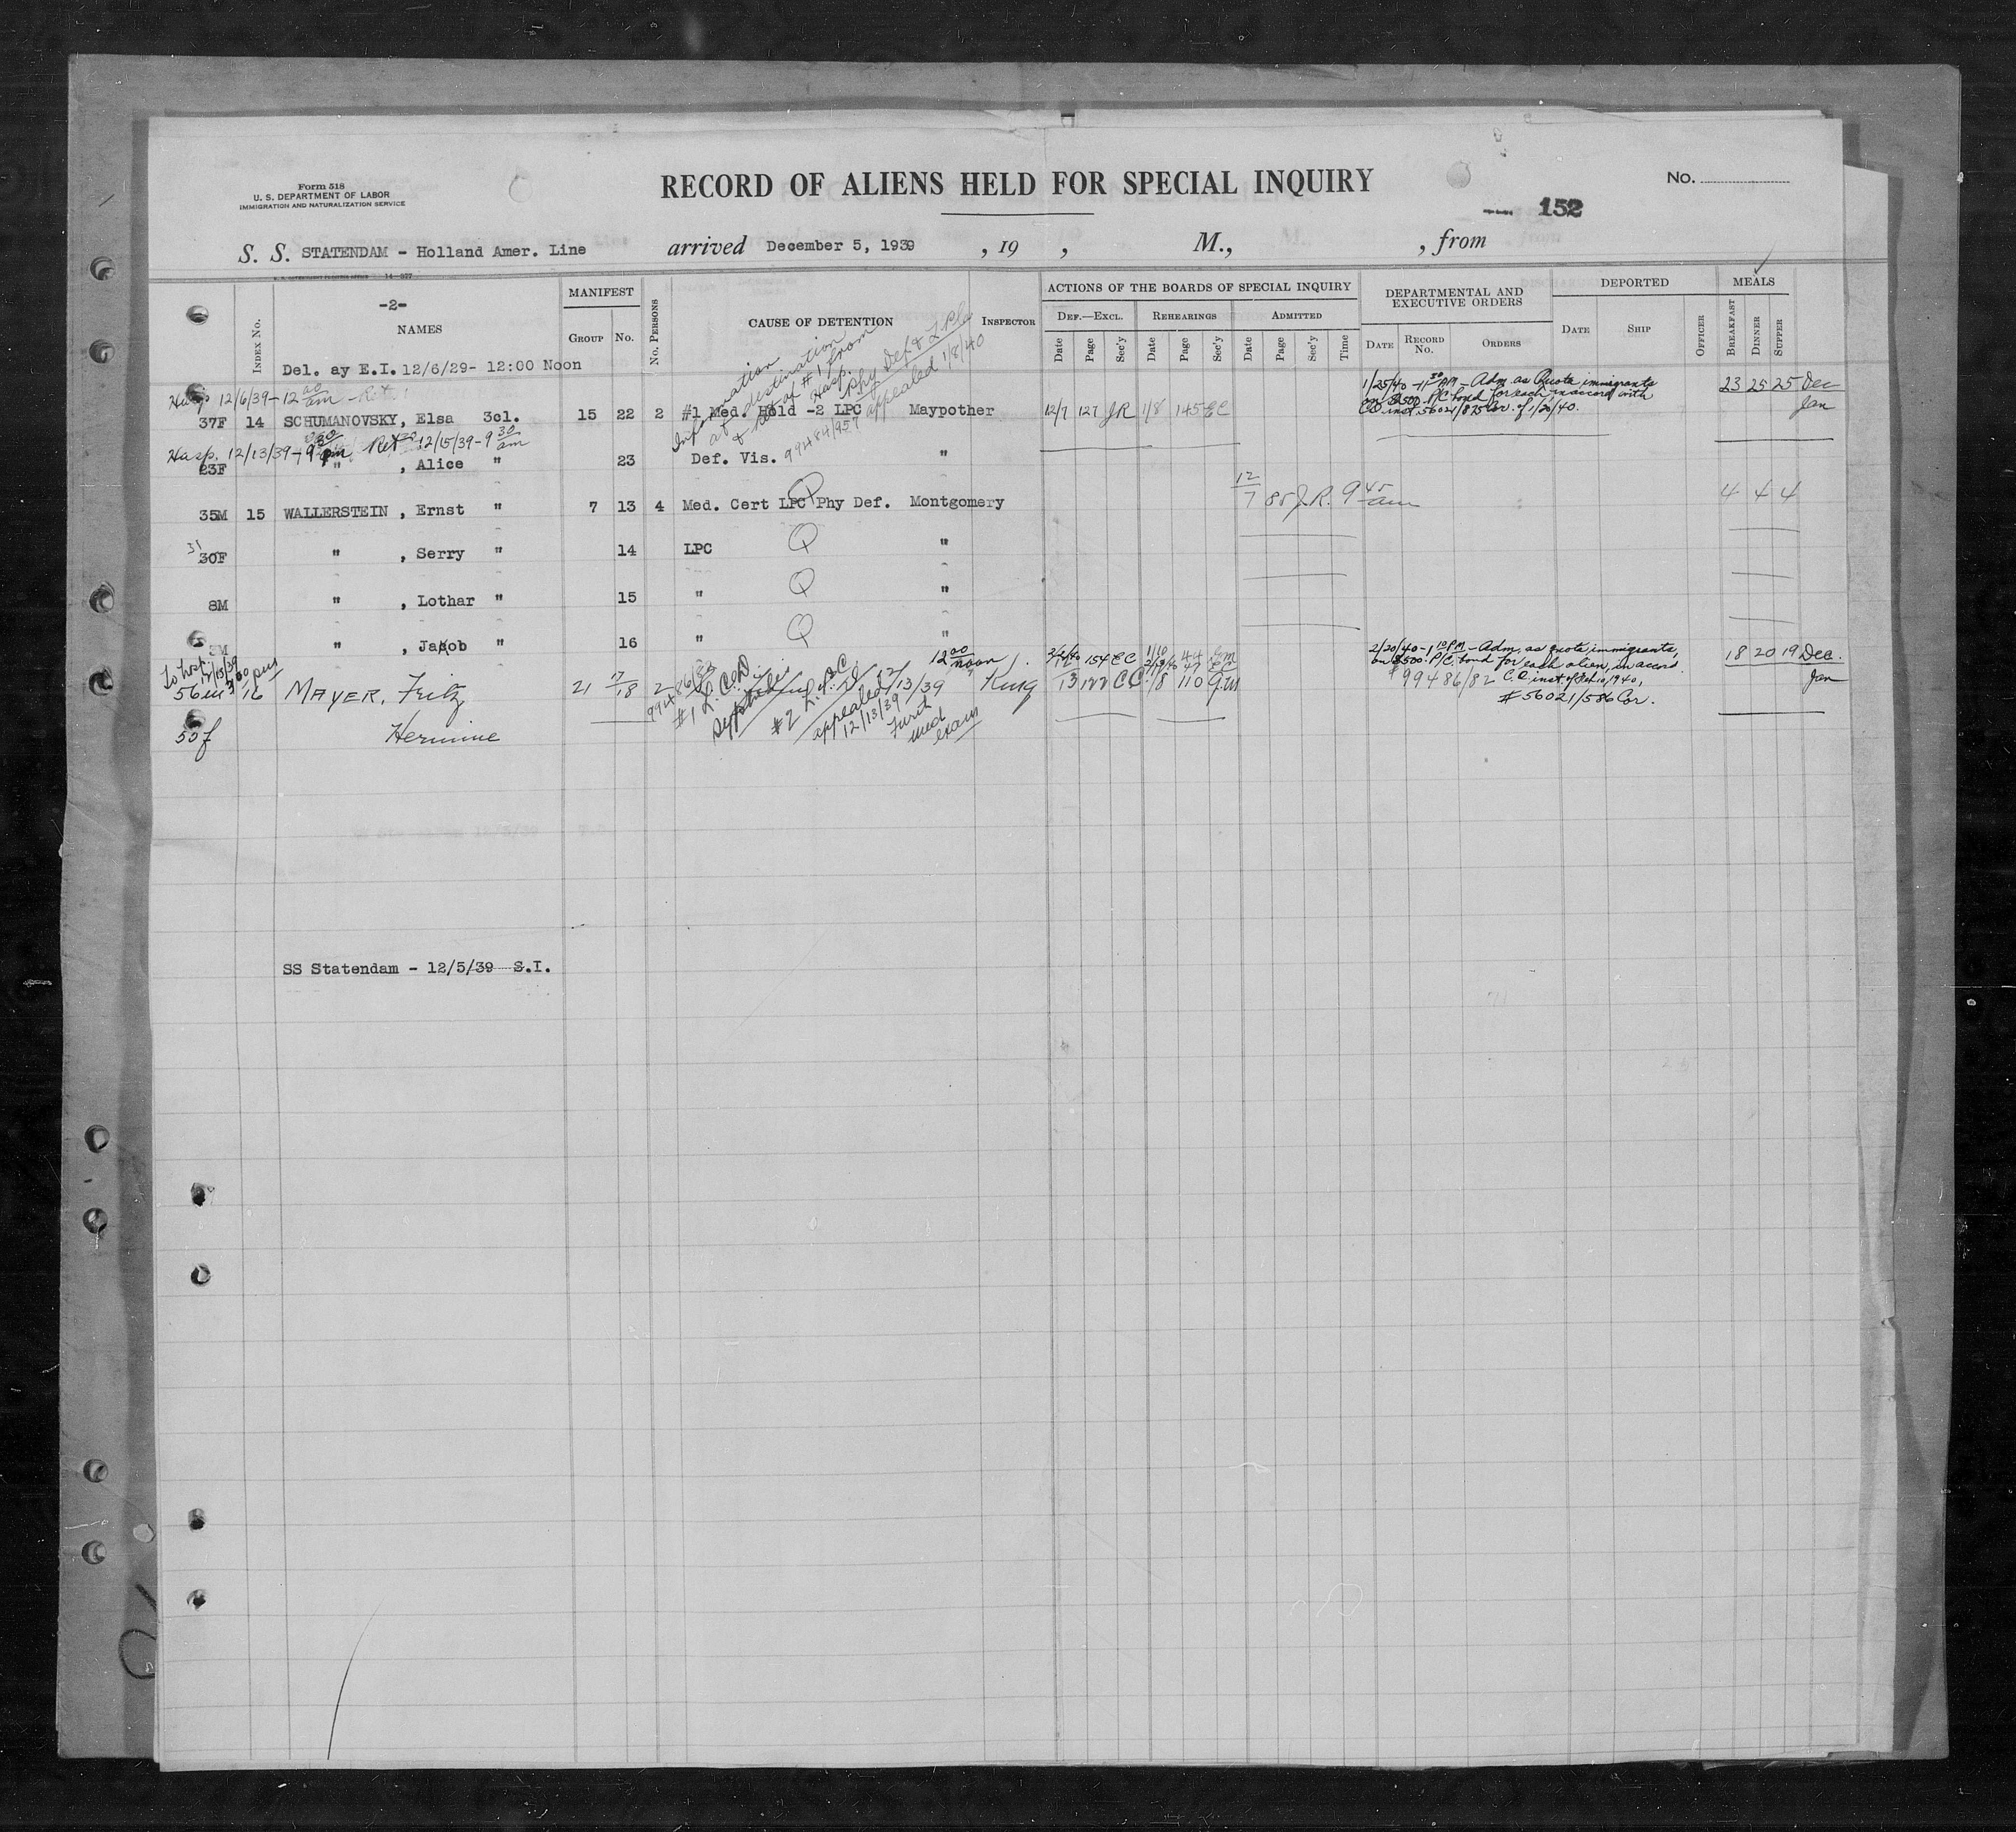 Form 518
U. S. DEPARTMENT OF LABOR
IMMIGRATION AND NATURALIZATION SERVICE
RECORD OF ALIENS HELD FOR SPECIAL INQUIRY
No.
152
S. S. STATENDAM - Holland Amer. Line arrived December 5, 1939 , 19 , M., , from
14-577
INDEX No. -2- NAMES MANIFEST GROUP No. No. PERSONS CAUSE OF DETENTION INSPECTOR
ACTIONS OF THE BOARDS OF SPECIAL INQUIRY
DEF.—EXCL. REHEARINGS ADMITTED
Date Page Sec'y Date Page Sec'y Date Page Sec'y Time
DEPARTMENTAL AND EXECUTIVE ORDERS
DATE RECORD No. ORDERS
DEPORTED
DATE SHIP OFFICER
MEALS
BREAKFAST DINNER SUPPER
Del. ay E.I. 12/6/29- 12:00 Noon
Information
at destination
& Ret of #1 from
Hosp.
#Phy Def. & LPC
appealed 1/8/40
99484/959
Hosp 12/6/39-12 00 am - Ret
37F 14 SCHUMANOVSKY, Elsa 3cl. 15 22 2 #1 Med. Hold -2 LPC Maypother 12/7 127 JR 1/8 145 EC
1/25/40 - 11 30 AM - Adm as Quota immigrants
on $500. P/C bond for each, in accord with
CO inst. 56021/875 Cor. of 1/20/40.
23 25 25 Dec
Jan
Hosp. 12/13/39-9 30 pm Ret 12/15/39-9 30 am
23F " , Alice " 23 Def. Vis. "
35M 15 WALLERSTEIN , Ernst " 7 13 4 Med. Cert LPC Phy Def. Montgomery 12/7 85 J.R. 9 45 am 4 4 4
Q
31
30F " , Serry " 14 LPC Q "
8M " , Lothar " 15 " Q "
3M " , Jakob " 16 " Q "
To Hosp.
12/15/39
3 00 pm
56m 16 MAYER, Fritz 21 17/18 2 King
99486/82
#1 L.C.D.
#2 L.P.C
appealed 12/13/39
12/13/39
Furth
med
exam
12 00 noon
154 EC 1/10 44
13 122 CC 1/8 110 G.M
2/20/40 - 1 10 PM - Adm. as quota immigrants,
on $500. P/C. bond for each alien, in accord
#99486/82 C.O. inst. of Feb 10, 1940,
#56021/586 Cor.
18 20 19 Dec.
Jan
50f Hermine
SS Statendam - 12/5/39 S.I.